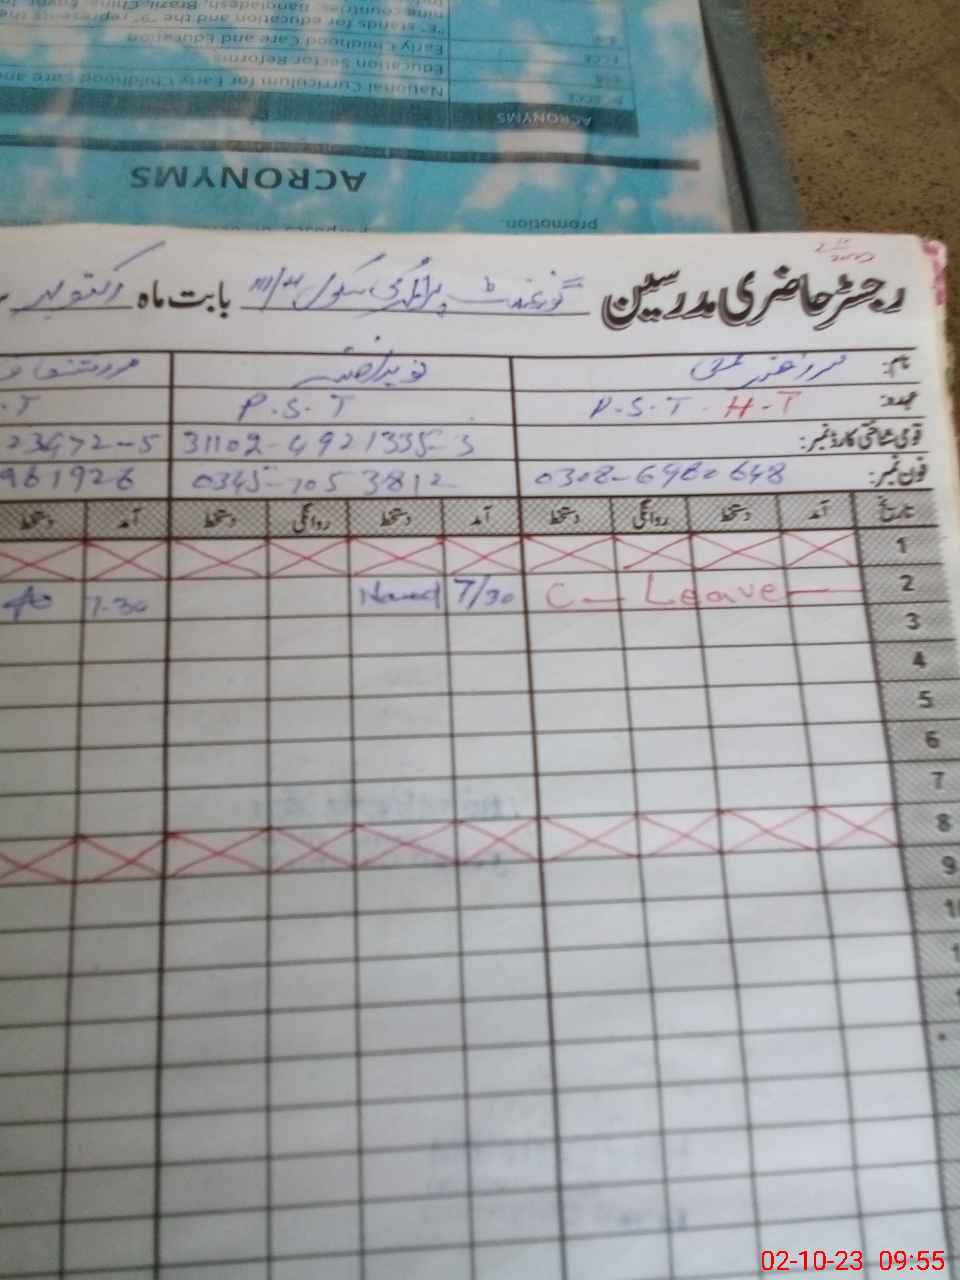 promotion.
ACRONYMS
ACRONYMS
National Curriculum for Early Childhood Care and
Education Sector Reforms
Early Childhood Care and Education
"E" stands for education and the "9" represents the
nine countries: Bangladesh, Brazil, China, Egypt
رجسٹر حاضری مدرسین گورنمنٹ پرائمری سکول بابت ماہ اکتوبر
نام:
عہدہ: P.S.T - H-T P.S.T .T
قومی شناختی کارڈ نمبر: 31102-4921335-3 23472-5
فون نمبر: 0308-6980648 0345-705 3812 961926
تاریخ آمد دستخط روانگی دستخط آمد دستخط روانگی دستخط آمد دستخط
1
2 C - Leave - 7/30 Naveed 7.30
3
4
5
6
7
8
9
10
02-10-23 09:55